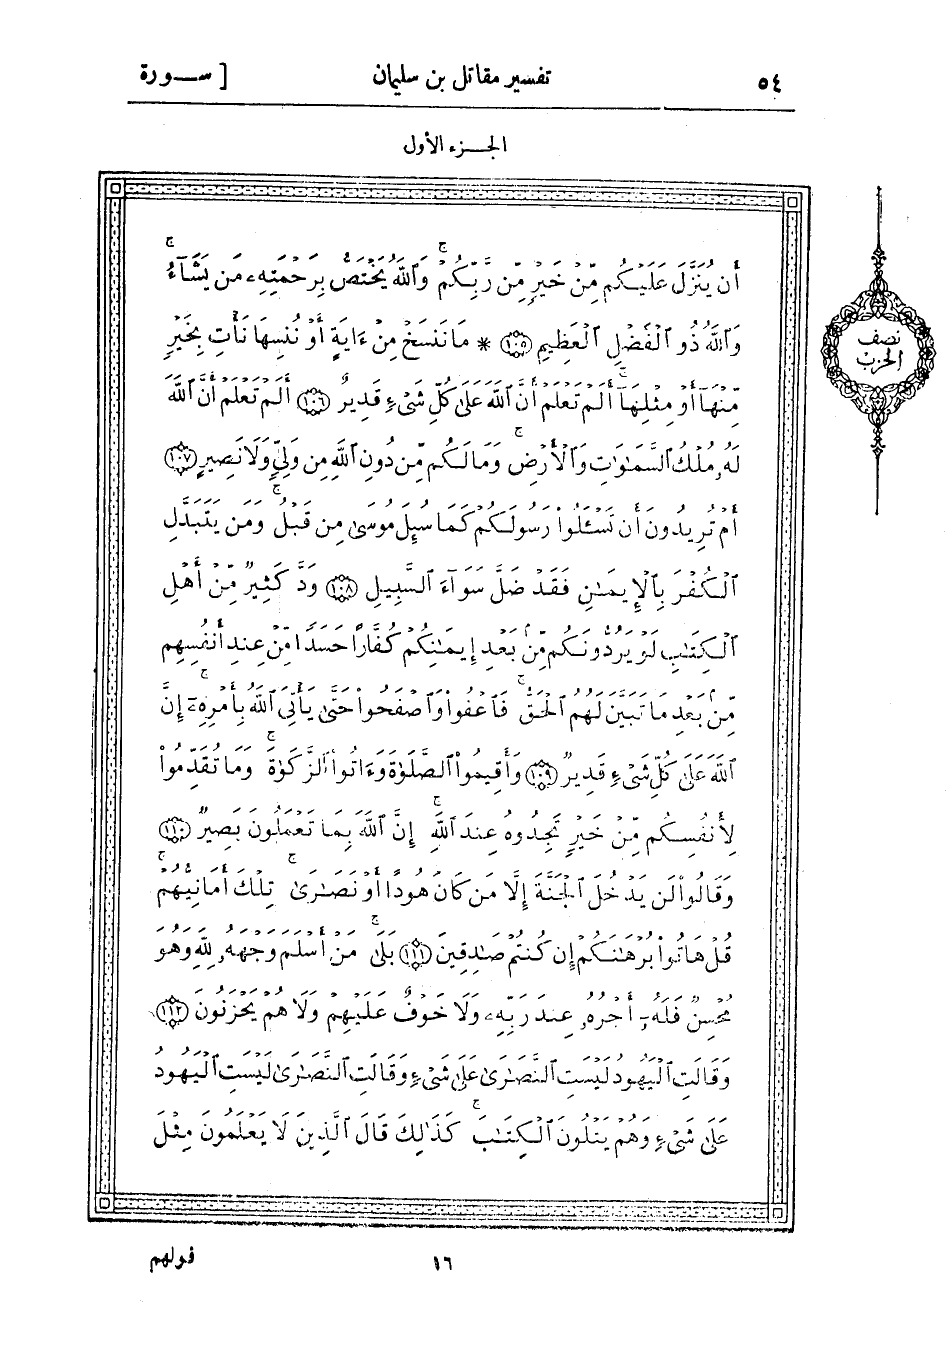 ٥٤ تفسير مقاتل بن سليمان [ ســورة
الجــزء الأول
أَن يُنَزَّلَ عَلَيْكُم مِّنْ خَيْرٍ مِّن رَّبِّكُمْ ۚ وَٱللَّهُ يَخْتَصُّ بِرَحْمَتِهِۦ مَن يَشَآءُ ۚ
وَٱللَّهُ ذُو ٱلْفَضْلِ ٱلْعَظِيمِ ﴿١٠٥﴾ * مَا نَنسَخْ مِنْ ءَايَةٍ أَوْ نُنسِهَا نَأْتِ بِخَيْرٍ
مِّنْهَآ أَوْ مِثْلِهَآ ۗ أَلَمْ تَعْلَمْ أَنَّ ٱللَّهَ عَلَىٰ كُلِّ شَىْءٍ قَدِيرٌ ﴿١٠٦﴾ أَلَمْ تَعْلَمْ أَنَّ ٱللَّهَ
لَهُۥ مُلْكُ ٱلسَّمَٰوَٰتِ وَٱلْأَرْضِ ۗ وَمَا لَكُم مِّن دُونِ ٱللَّهِ مِن وَلِىٍّ وَلَا نَصِيرٍ ﴿١٠٧﴾
أَمْ تُرِيدُونَ أَن تَسْـَٔلُوا۟ رَسُولَكُمْ كَمَا سُئِلَ مُوسَىٰ مِن قَبْلُ ۗ وَمَن يَتَبَدَّلِ
ٱلْكُفْرَ بِٱلْإِيمَٰنِ فَقَدْ ضَلَّ سَوَآءَ ٱلسَّبِيلِ ﴿١٠٨﴾ وَدَّ كَثِيرٌ مِّنْ أَهْلِ
ٱلْكِتَٰبِ لَوْ يَرُدُّونَكُم مِّنۢ بَعْدِ إِيمَٰنِكُمْ كُفَّارًا حَسَدًا مِّنْ عِندِ أَنفُسِهِم
مِّنۢ بَعْدِ مَا تَبَيَّنَ لَهُمُ ٱلْحَقُّ ۖ فَٱعْفُوا۟ وَٱصْفَحُوا۟ حَتَّىٰ يَأْتِىَ ٱللَّهُ بِأَمْرِهِۦٓ ۗ إِنَّ
ٱللَّهَ عَلَىٰ كُلِّ شَىْءٍ قَدِيرٌ ﴿١٠٩﴾ وَأَقِيمُوا۟ ٱلصَّلَوٰةَ وَءَاتُوا۟ ٱلزَّكَوٰةَ ۚ وَمَا تُقَدِّمُوا۟
لِأَنفُسِكُم مِّنْ خَيْرٍ تَجِدُوهُ عِندَ ٱللَّهِ ۗ إِنَّ ٱللَّهَ بِمَا تَعْمَلُونَ بَصِيرٌ ﴿١١٠﴾
وَقَالُوا۟ لَن يَدْخُلَ ٱلْجَنَّةَ إِلَّا مَن كَانَ هُودًا أَوْ نَصَٰرَىٰ ۗ تِلْكَ أَمَانِيُّهُمْ ۗ
قُلْ هَاتُوا۟ بُرْهَٰنَكُمْ إِن كُنتُمْ صَٰدِقِينَ ﴿١١١﴾ بَلَىٰ ۚ مَنْ أَسْلَمَ وَجْهَهُۥ لِلَّهِ وَهُوَ
مُحْسِنٌ فَلَهُۥٓ أَجْرُهُۥ عِندَ رَبِّهِۦ وَلَا خَوْفٌ عَلَيْهِمْ وَلَا هُمْ يَحْزَنُونَ ﴿١١٢﴾
وَقَالَتِ ٱلْيَهُودُ لَيْسَتِ ٱلنَّصَٰرَىٰ عَلَىٰ شَىْءٍ وَقَالَتِ ٱلنَّصَٰرَىٰ لَيْسَتِ ٱلْيَهُودُ
عَلَىٰ شَىْءٍ وَهُمْ يَتْلُونَ ٱلْكِتَٰبَ ۗ كَذَٰلِكَ قَالَ ٱلَّذِينَ لَا يَعْلَمُونَ مِثْلَ
نصف
الحزب
١٦ قولهم